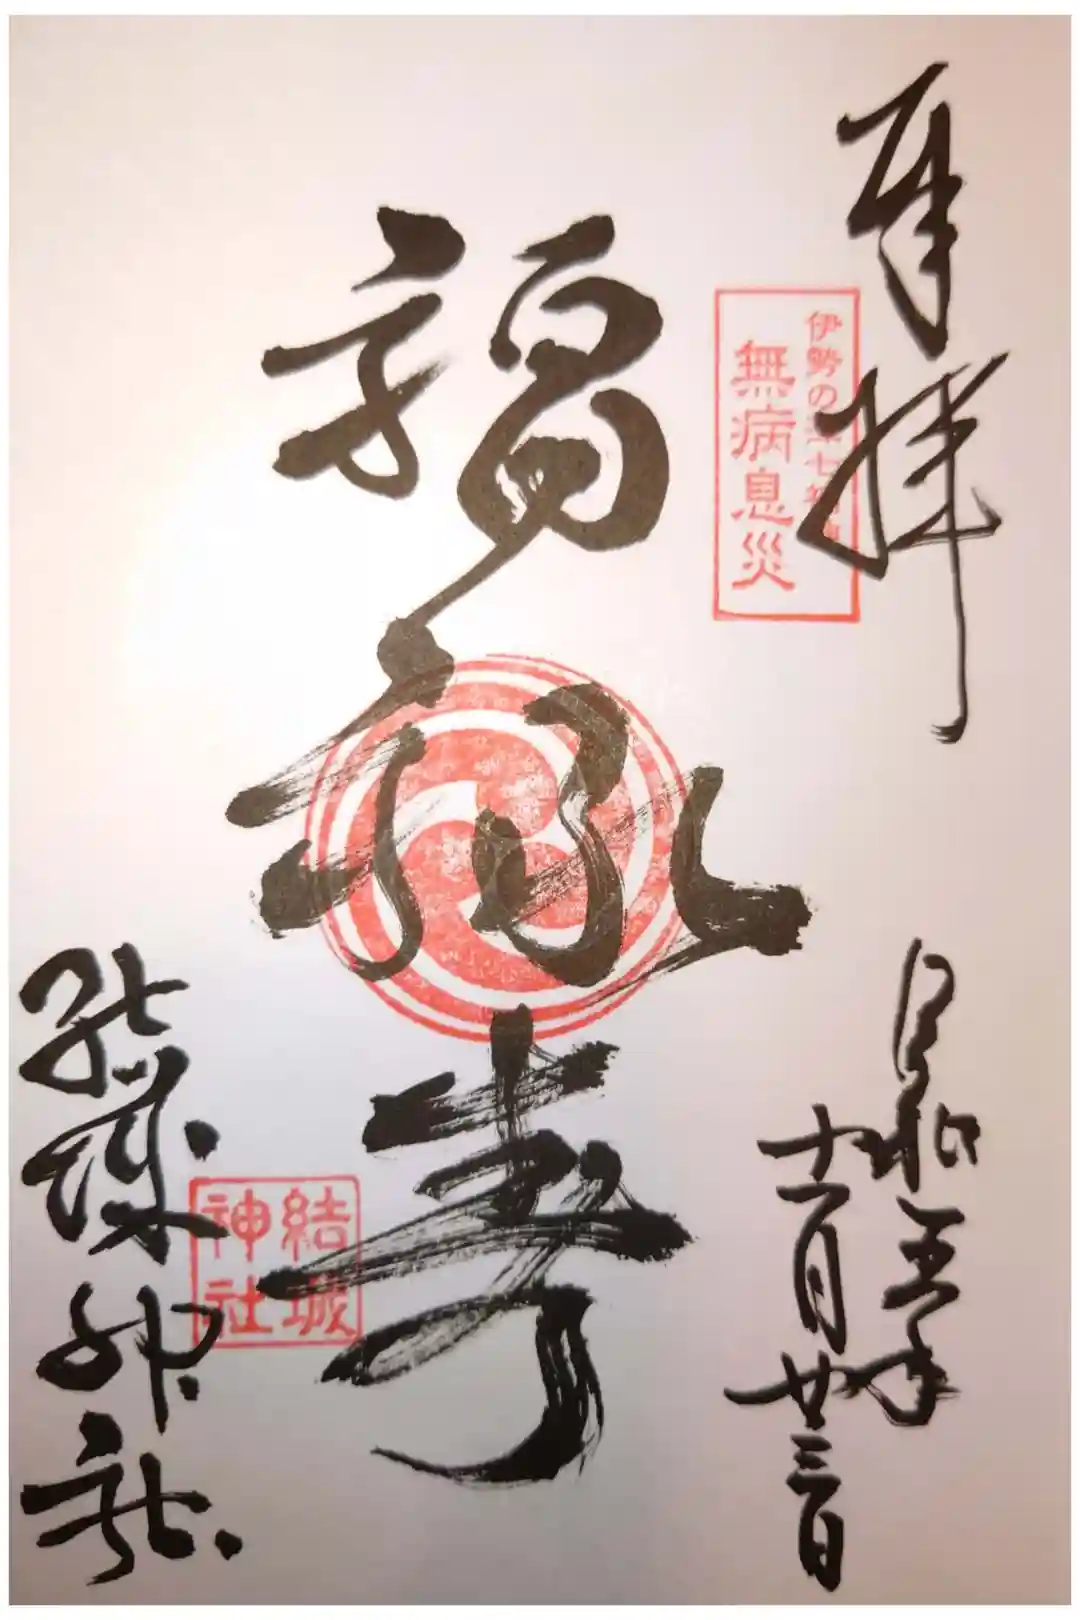 奉拝
伊勢の津七福神
無病息災
令和五年
十一月廿三日
福禄寿
結城神社
結城
神社